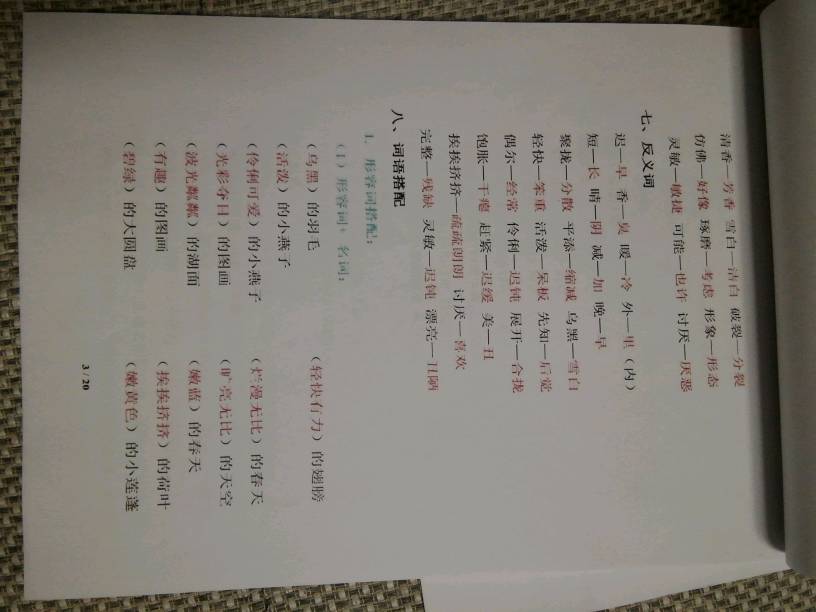 清香—芳香 雪白—洁白 破裂—分裂
仿佛—好像 琢磨—考虑 形象—形态
灵敏—敏捷 可能—也许 讨厌—厌恶
七、反义词
迟—早 香—臭 暖—冷 外—里（内）
短—长 晴—阴 减—加 晚—早
聚拢—分散 平添—缩减 乌黑—雪白
轻快—笨重 活泼—呆板 先知—后觉
偶尔—经常 伶俐—迟钝 展开—合拢
饱胀—干瘪 赶紧—迟缓 美—丑
挨挨挤挤—疏疏朗朗 讨厌—喜欢
完整—残缺 灵敏—迟钝 漂亮—丑陋
八、词语搭配
1. 形容词搭配：
（1）形容词+ 名词：
（乌黑）的羽毛 （轻快有力）的翅膀
（活泼）的小燕子
（伶俐可爱）的小燕子 （烂漫无比）的春天
（光彩夺目）的图画 （旷亮无比）的天空
（波光粼粼）的湖面 （嫩蓝）的春天
（有趣）的图画 （挨挨挤挤）的荷叶
（碧绿）的大圆盘 （嫩黄色）的小莲蓬
3 / 20